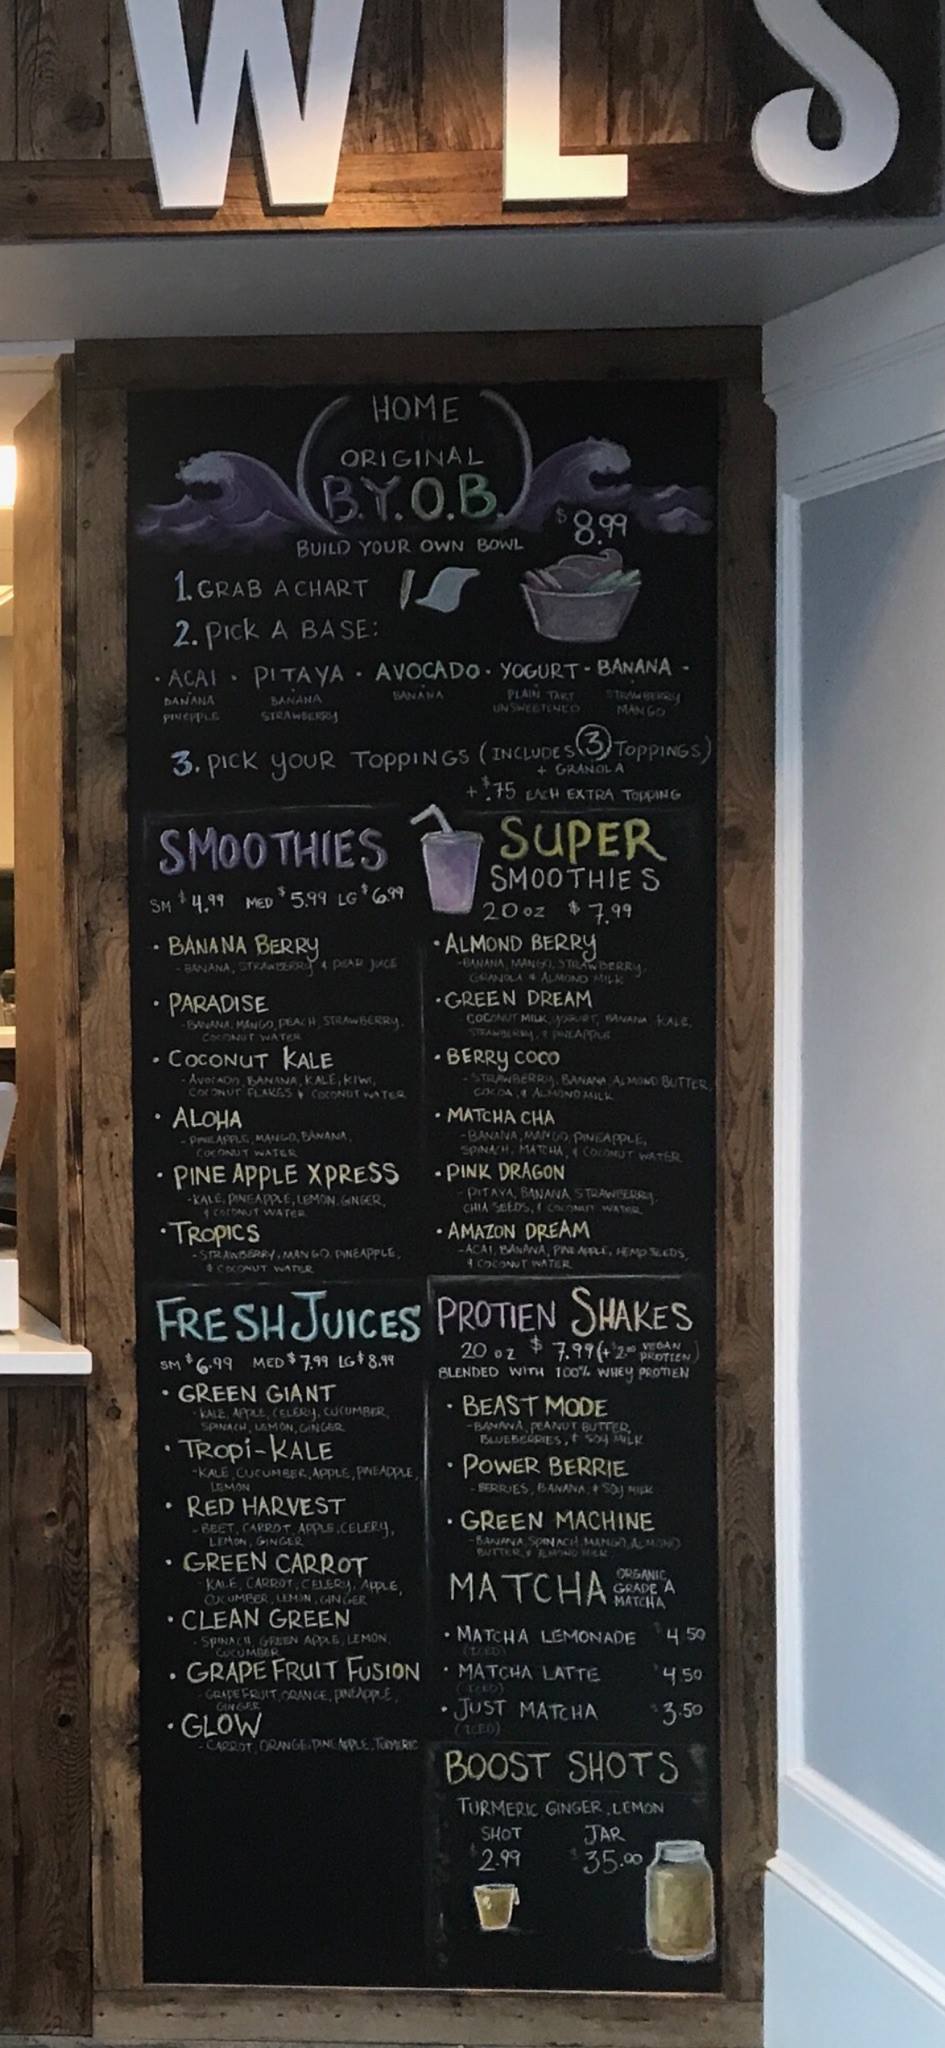 W L S
HOME
ORIGINAL
B.Y.O.B.
BUILD YOUR OWN BOWL
$8.99
1. GRAB A CHART
2. PICK A BASE:
· ACAI · PITAYA · AVOCADO · YOGURT - BANANA -
BANANA BANANA BANANA PLAIN TART STRAWBERRY
PINEPPLE STRAWBERRY UNSWEETENED MANGO
3. PICK YOUR TOPPINGS (INCLUDES 3 TOPPINGS)
+ GRANOLA
+ $.75 EACH EXTRA TOPPING
SMOOTHIES
SM $4.99 MED $5.99 LG $6.99
· BANANA BERRY
- BANANA, STRAWBERRY & PEAR JUICE
· PARADISE
- BANANA, MANGO, PEACH, STRAWBERRY,
COCONUT WATER
· COCONUT KALE
- AVOCADO, BANANA, KALE, KIWI,
COCONUT FLAKES & COCONUT WATER
· ALOHA
- PINEAPPLE, MANGO, BANANA,
COCONUT WATER
· PINE APPLE XPRESS
- KALE, PINEAPPLE, LEMON, GINGER,
& COCONUT WATER
· TROPICS
- STRAWBERRY, MANGO, PINEAPPLE,
& COCONUT WATER
SUPER
SMOOTHIES
20 oz $7.99
· ALMOND BERRY
- BANANA, MANGO, STRAWBERRY,
GRANOLA & ALMOND MILK
· GREEN DREAM
COCONUT MILK, YOGURT, BANANA, KALE,
STRAWBERRY, & PINEAPPLE
· BERRY COCO
- STRAWBERRY, BANANA, ALMOND BUTTER,
COCOA, & ALMOND MILK
· MATCHA CHA
- BANANA, MANGO, PINEAPPLE,
SPINACH, MATCHA, & COCONUT WATER
· PINK DRAGON
- PITAYA, BANANA, STRAWBERRY,
CHIA SEEDS, & COCONUT WATER
· AMAZON DREAM
- ACAI, BANANA, PINEAPPLE, HEMP SEEDS,
& COCONUT WATER
FRESH JUICES
SM $6.99 MED $7.99 LG $8.99
· GREEN GIANT
- KALE, APPLE, CELERY, CUCUMBER,
SPINACH, LEMON, GINGER
· TROPI-KALE
- KALE, CUCUMBER, APPLE, PINEAPPLE,
LEMON
· RED HARVEST
- BEET, CARROT, APPLE, CELERY,
LEMON, GINGER
· GREEN CARROT
- KALE, CARROT, CELERY, APPLE,
CUCUMBER, LEMON, GINGER
· CLEAN GREEN
- SPINACH, GREEN APPLE, LEMON,
CUCUMBER
· GRAPE FRUIT FUSION
- GRAPEFRUIT, ORANGE, PINEAPPLE,
GINGER
· GLOW
- CARROT, ORANGE, PINEAPPLE, TURMERIC
PROTIEN SHAKES
20 oz $7.99 (+ $2.00 VEGAN PROTIEN)
BLENDED WITH 100% WHEY PROTIEN
· BEAST MODE
- BANANA, PEANUT BUTTER,
BLUEBERRIES, & SOY MILK
· POWER BERRIE
- BERRIES, BANANA, & SOY MILK
· GREEN MACHINE
- BANANA, SPINACH, MANGO, ALMOND
BUTTER, & ALMOND MILK
MATCHA ORGANIC GRADE A MATCHA
· MATCHA LEMONADE $4.50
(ICED)
· MATCHA LATTE $4.50
(ICED)
· JUST MATCHA $3.50
(ICED)
BOOST SHOTS
TURMERIC, GINGER, LEMON
SHOT JAR
$2.99 $35.00